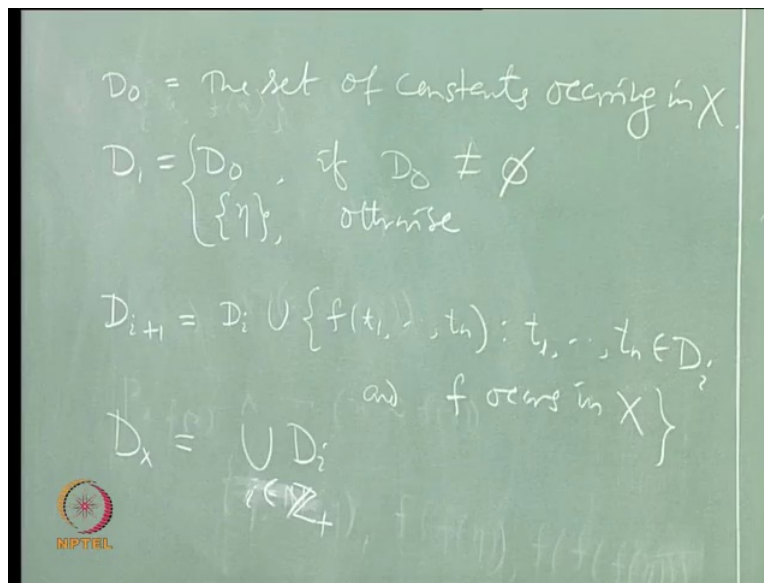 D₀ = The set of constants occurring in X.
D₁ = { D₀, if D₀ ≠ ∅
{η}, otherwise
Dᵢ₊₁ = Dᵢ ∪ { f(t₁, ⋯, tₙ) : t₁, ⋯, tₙ ∈ Dᵢ
and f occurs in X }
Dₓ = ∪ Dᵢ
i ∈ ℤ₊
NPTEL